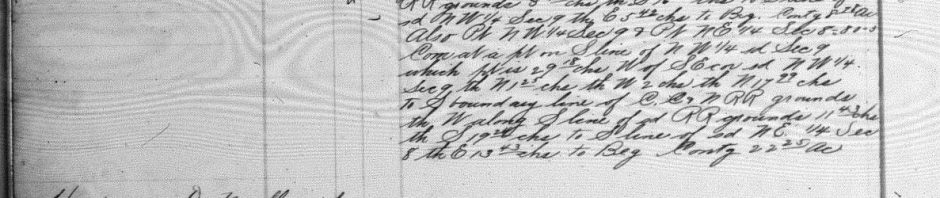 RR grounds
sd NW 1/4 Sec 9 th E 5 43 chs to Beg. Contg 8 28 Ac
Also Pt NW 1/4 Sec 9 & Pt NE 1/4 Sec 8-31-5
Com at a pt on S line of NW 1/4 sd Sec 9
which pt is 29 18 chs W of SE cor sd NW 1/4
Sec 9 th N 1 25 chs th W 2 chs th N 17 29 chs
to S boundary line of C. C & N RR grounds
th W along S line of sd RR grounds 11 43 chs
th S 19 20 chs to S line of sd NE 1/4 Sec
8 th E 13 43 chs to Beg Contg 22 25 Ac